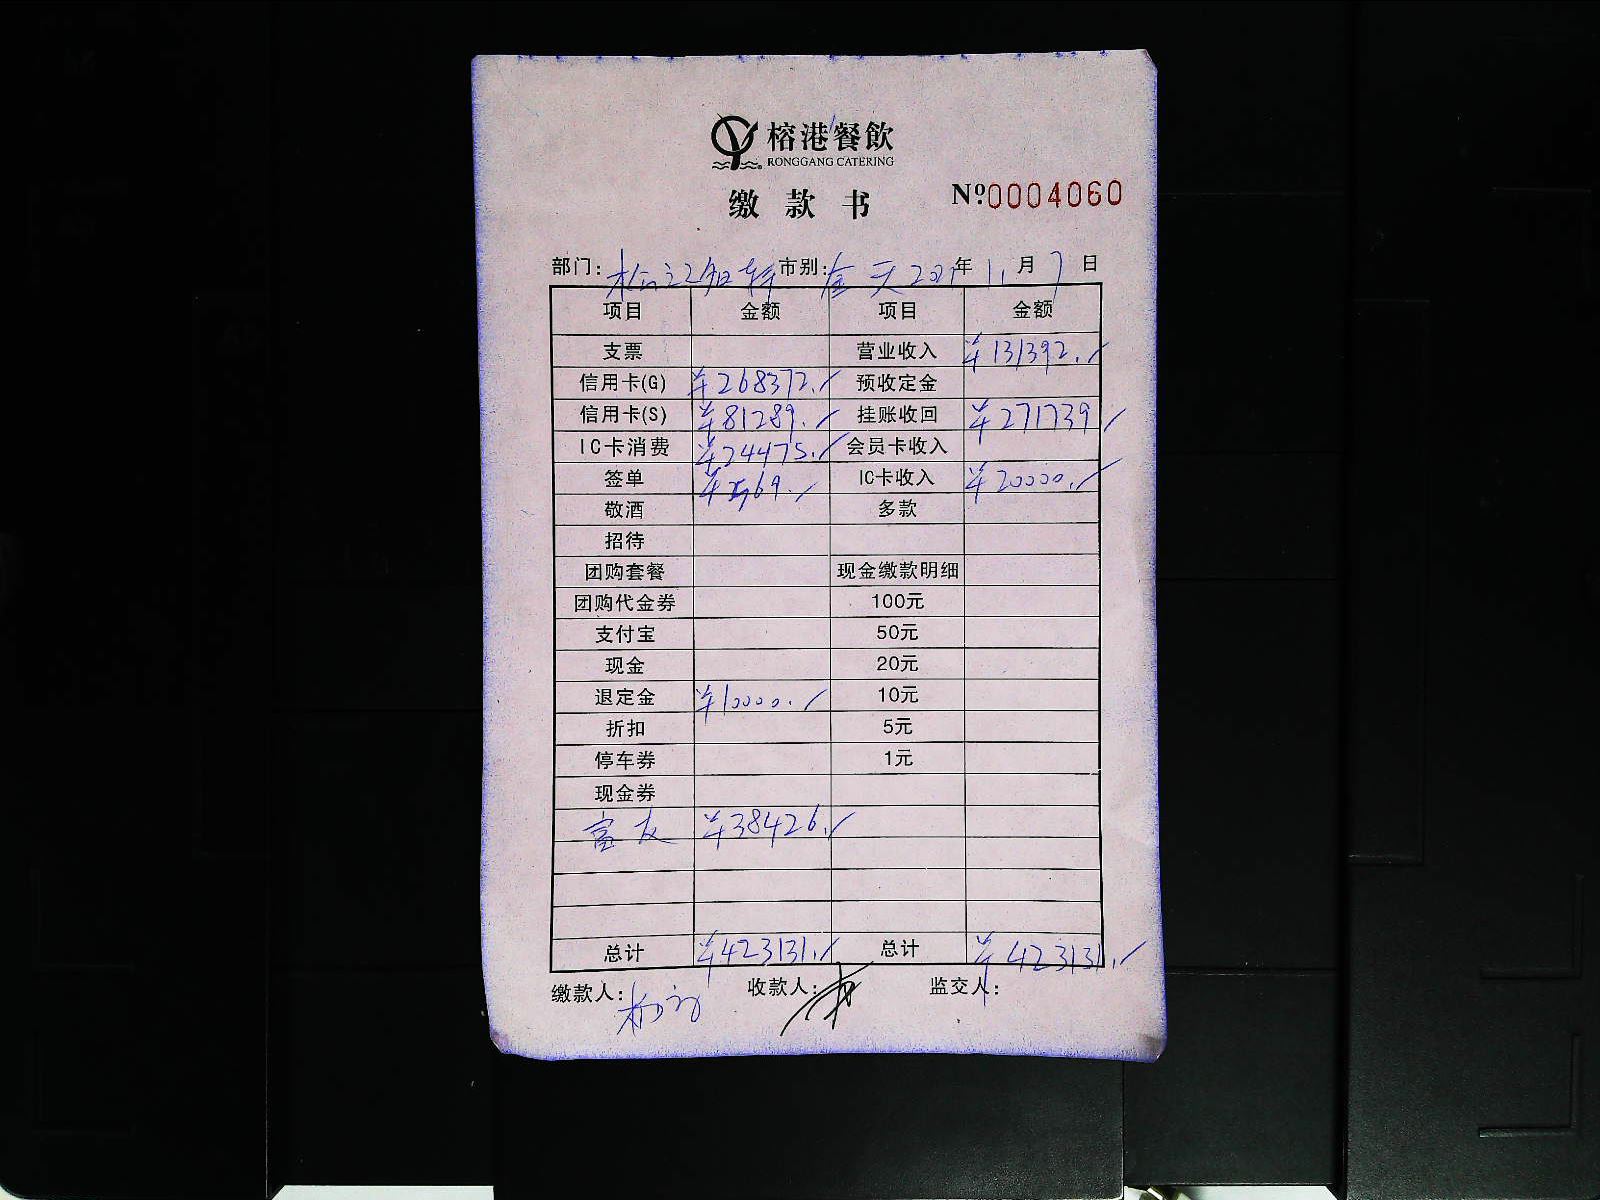 榕港餐飲
RONGGANG CATERING
缴款书 Nº:0004060
部门: 松江 市别: 全天 年 11 月 7 日
项目 金额 项目 金额
支票 营业收入 ¥131392.
信用卡(G) ¥268372. 预收定金
信用卡(S) ¥81289. 挂账收回 ¥271739
IC卡消费 ¥24475. 会员卡收入
签单 ¥569. IC卡收入 ¥20000.
敬酒 多款
招待
团购套餐 现金缴款明细
团购代金券 100元
支付宝 50元
现金 20元
退定金 ¥10000. 10元
折扣 5元
停车券 1元
现金券
富友 ¥38426.
总计 ¥423131. 总计 ¥423131.
缴款人: 收款人: 监交人: